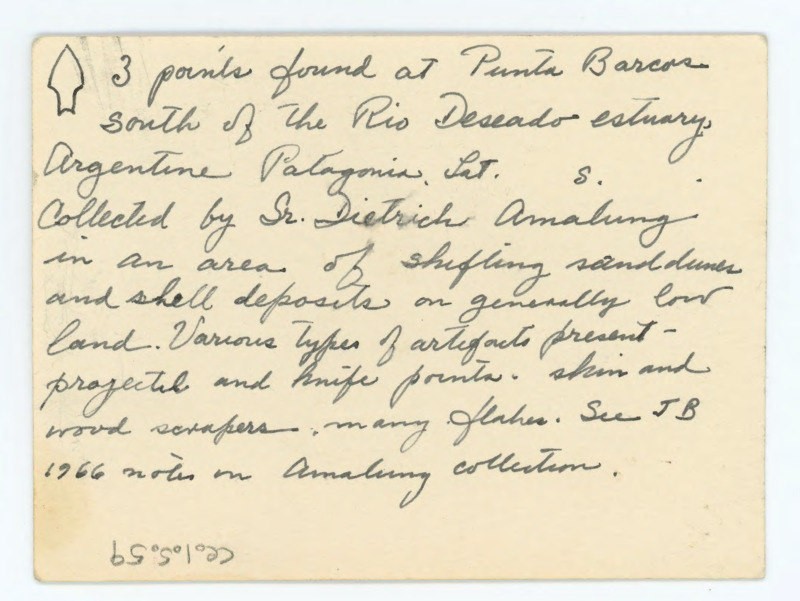 3 points found at Punta Barcos
south of the Rio Deseado estuary,
Argentine Patagonia. Lat. S.
Collected by Sr. Dietrich Amalung
in an area of shifting sand dunes
and shell deposits on generally low
land. Various types of artefacts present -
projectil and knife points. skin and
wood scrapers, many flakes. See JB
1966 notes on Amalung collection.